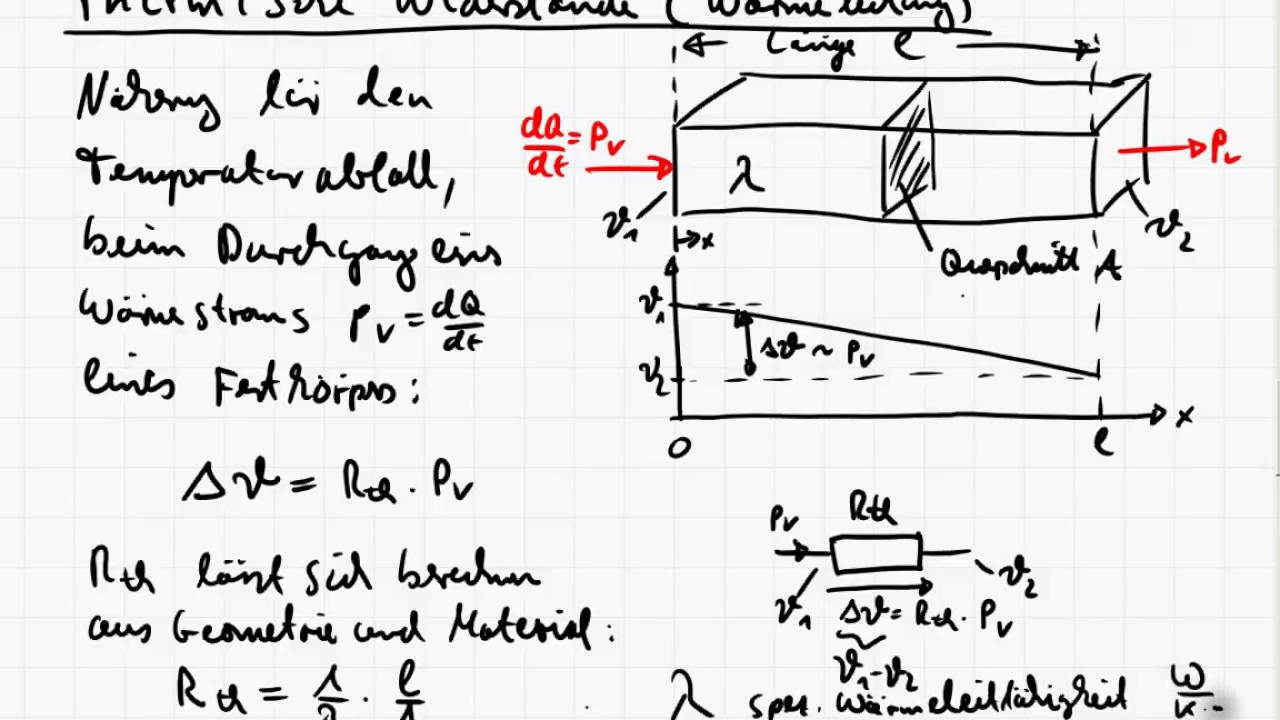 Thermische Widerstände (Wärmeleitung)
Näherung für den
Temperaturabfall,
beim Durchgang eins
Wärmestroms P_v = dQ/dt
eines Festkörpers:
Δϑ = R_th · P_v
R_th lässt sich berechnen
aus Geometrie und Material:
R_th = 1/λ · l/A
Länge l
dQ/dt = P_v
λ
P_v
ϑ_1
x
ϑ_2
Querschnitt A
ϑ_1
Δϑ ~ P_v
ϑ_2
x
0
l
P_v
R_th
ϑ_1
ϑ_2
Δϑ = R_th · P_v
ϑ_1 - ϑ_2
λ spez. Wärmeleitfähigkeit W/K